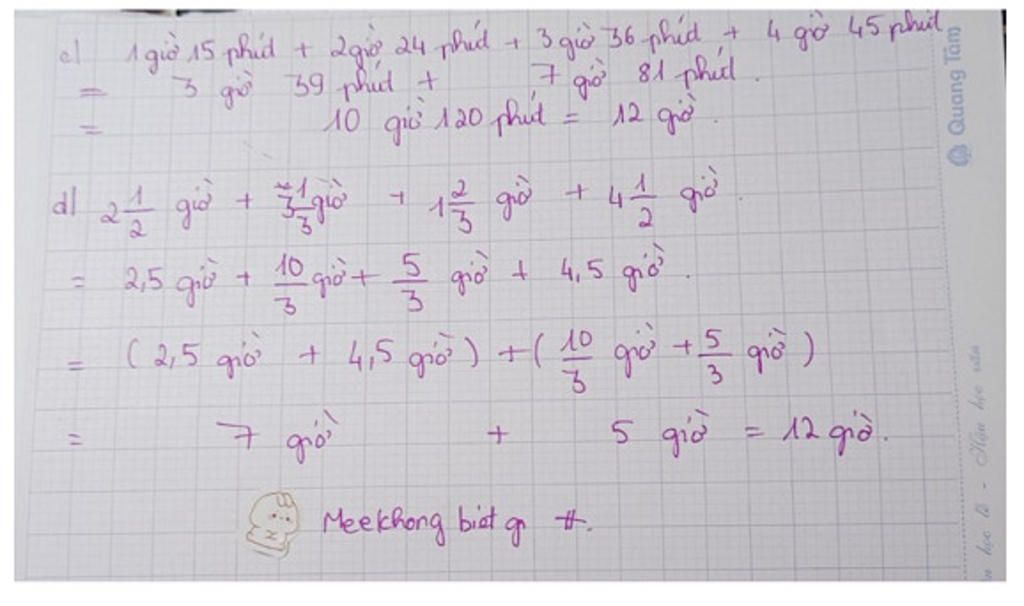 c) 1 giờ 15 phút + 2 giờ 24 phút + 3 giờ 36 phút + 4 giờ 45 phút
= 3 giờ 39 phút + 7 giờ 81 phút.
= 10 giờ 120 phút = 12 giờ.
d) 2 1/2 giờ + 3 1/3 giờ + 1 2/3 giờ + 4 1/2 giờ.
= 2,5 giờ + 10/3 giờ + 5/3 giờ + 4,5 giờ.
= (2,5 giờ + 4,5 giờ) + (10/3 giờ + 5/3 giờ)
= 7 giờ + 5 giờ = 12 giờ.
Meekhong biat gi #.
Quang Tâm
học là - Hậu học văn